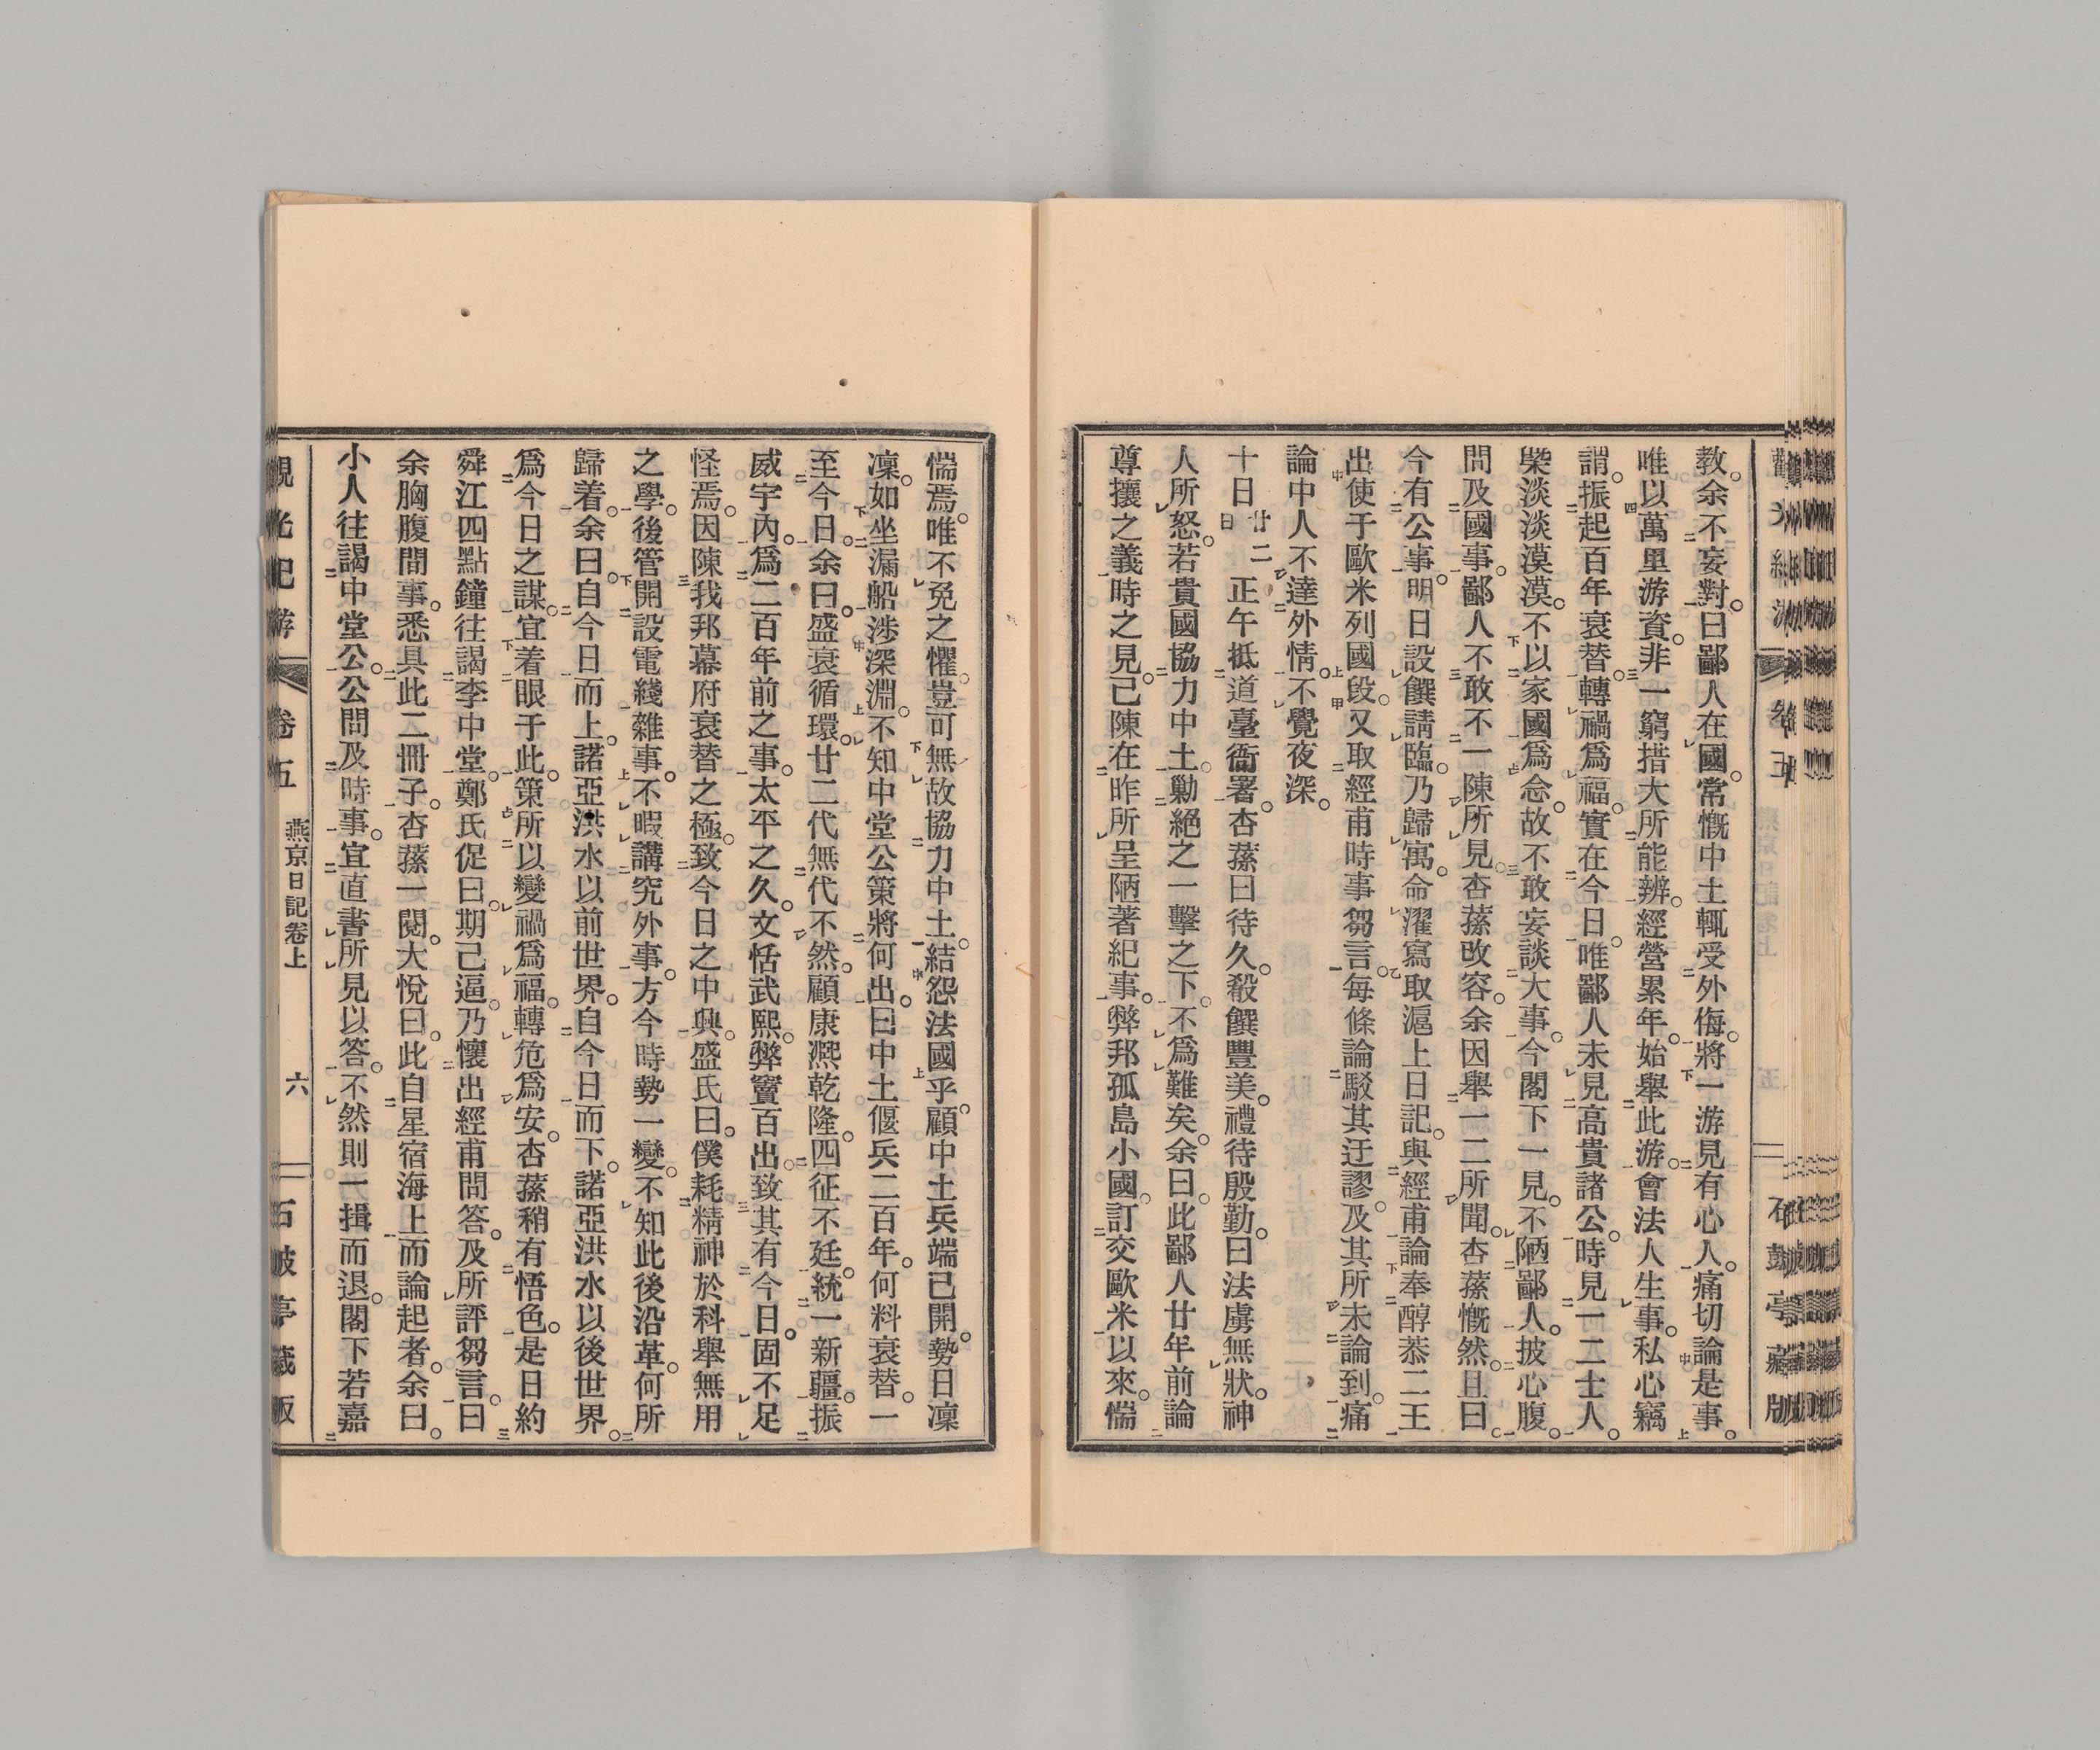 教。余不妄對。曰鄙人在國。常慨中土輒受外侮。將一游見有心人。痛切論是事。
唯以萬里游資。非一窮措大所能辨。經營累年。始舉此游。會法人生事。私心竊
謂。振起百年衰替。轉禍爲福。實在今日。唯鄙人未見高貴諸公。時見一二士人。
榘淡淡漠漠。不以家國爲念。故不敢妄談大事。今閣下一見。不陋鄙人。披心腹。
問及國事。鄙人不敢不一陳所見。杏蓀改容。余因舉一二所聞。杏蓀慨然。且曰。
今有公事。明日設饌請臨。乃歸寓。命濯寫取滬上日記。與經甫論奉醇恭二王
出使于歐米列國段。又取經甫時事芻言。每條論駁其迂謬。及其所未論到。痛
論中人不達外情。不覺夜深。
十日廿二日正午抵道臺衙署。杏蓀曰待久。殽饌豐美。禮待殷勤。曰法虜無狀。神
人所怒。若貴國協力中土。勦絕之一擊之下。不爲難矣。余曰。此鄙人廿年前論
尊攘之義。時之見。已陳在昨所呈陋著紀事。弊邦孤島小國。訂交歐米以來。惴
惴焉。唯不免之懼。豈可無故協力中土。結怨法國乎。顧中土兵端已開。勢日凜
凜。如坐漏船渉深淵。不知中堂公策將何出。曰中土偃兵二百年。何料衰替。一
至今日。余曰。盛衰循環。廿二代無代不然。顧康凞乾隆。四征不廷。統一新疆。振
威宇內。爲二百年前之事。太平之久。文恬武熙。弊竇百出。致其有今日。固不足
怪焉。因陳我邦幕府衰替之極。致今日之中興。盛氏曰。僕耗精神於科舉無用
之學。後管開設電綫雜事。不暇講究外事。方今時勢一變。不知此後沿革。何所
歸着。余曰。自今日而上。諾亞洪水以前世界。自今日而下。諾亞洪水以後世界。
爲今日之謀。宜着眼于此。策所以變禍爲福。轉危爲安。杏蓀稍有悟色。是日約
舜江四點鐘往謁李中堂。鄭氏促曰。期已逼。乃懷出經甫問答。及所評芻言。曰
余胸腹間事。悉具此二冊子。杏蓀一閱。大悅曰。此自星宿海上而論起者。余曰。
小人往謁中堂公。公問及時事。宜直書所見以答。不然則一揖而退。閣下若嘉
觀光紀游 卷五 燕京日記卷上 六